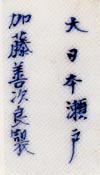 大日本瀬戸
加藤善次良製